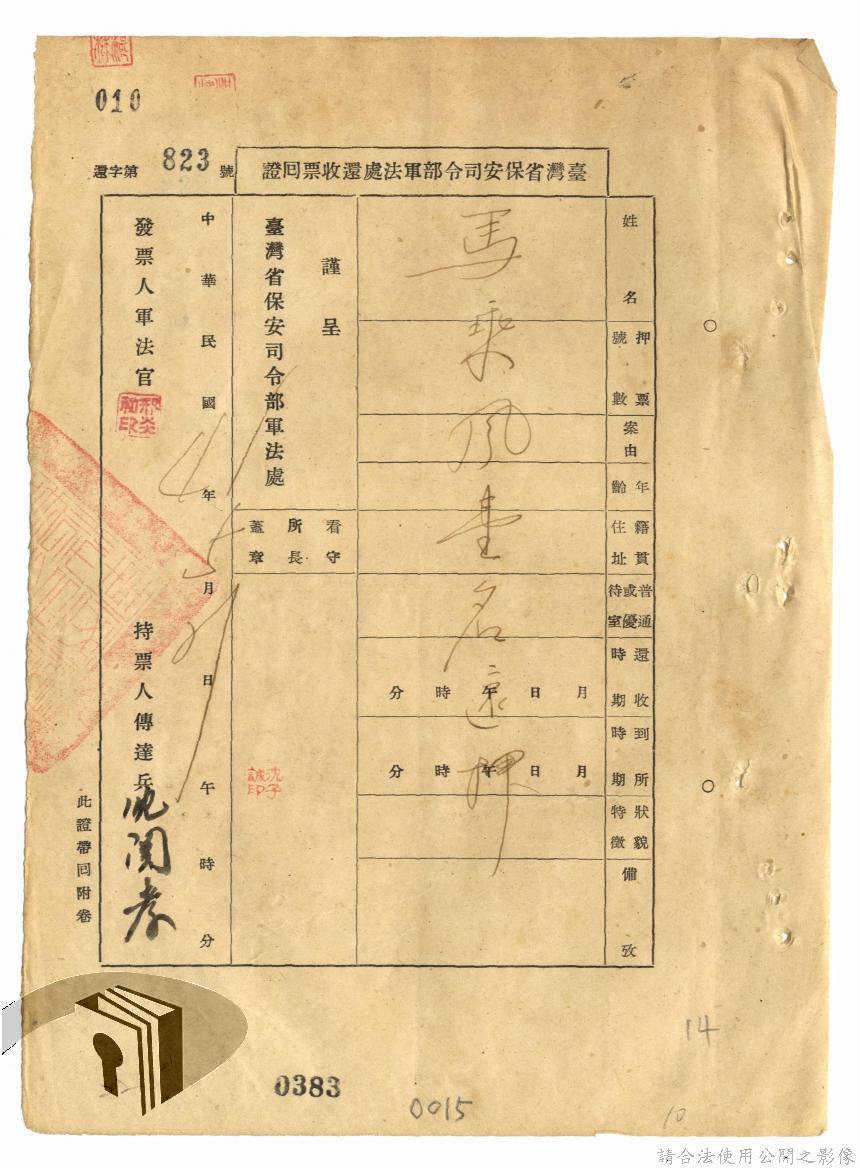 010
還字第823號
臺灣省保安司令部軍法處還收票回證
姓名
押票號數
案由
年齡
籍貫住址
普通或優待室
還收時期
月日午時分
到所時期
月日午時分
狀貌特徵
備攷
馬乘風壹名還押
謹呈
臺灣省保安司令部軍法處
看守所長蓋章
沈子誠印
中華民國41年5月21日午時分
發票人軍法官
持票人傳達兵
此證帶回附卷
0383
0015
14
10
請合法使用公開之影像